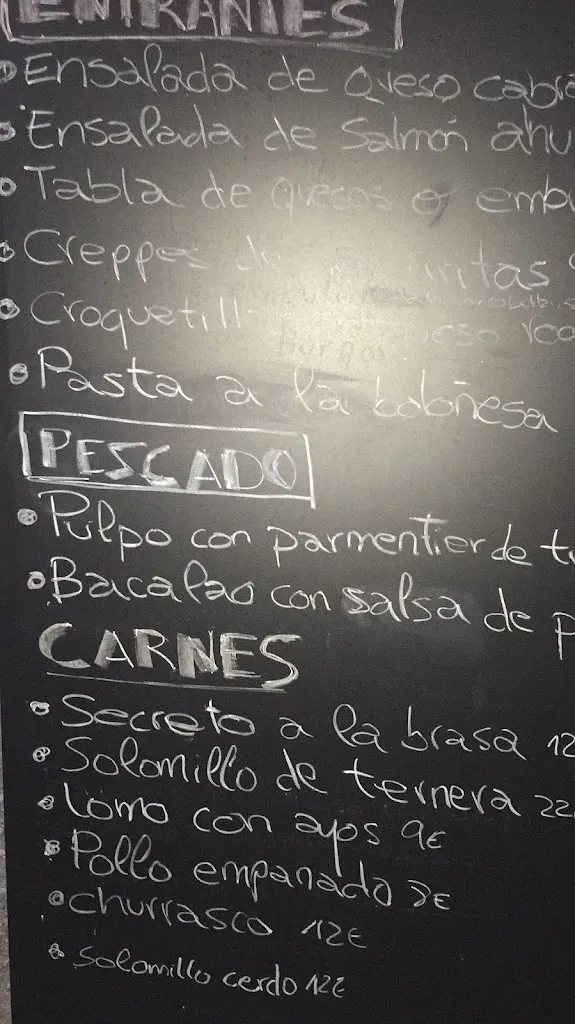 ENTRANTES
Ensalada de Queso cabra
Ensalada de Salmón ahu
Tabla de quesos o embu
Creppes
Croquetill
burgos
Pasta a la boloñesa
PESCADO
Pulpo con parmentier de t
Bacalao con salsa de p
CARNES
Secreto a la brasa 12
Solomillo de ternera 22
Lomo con ajos 9€
Pollo empanado 8€
churrasco 12€
solomillo cerdo 12€